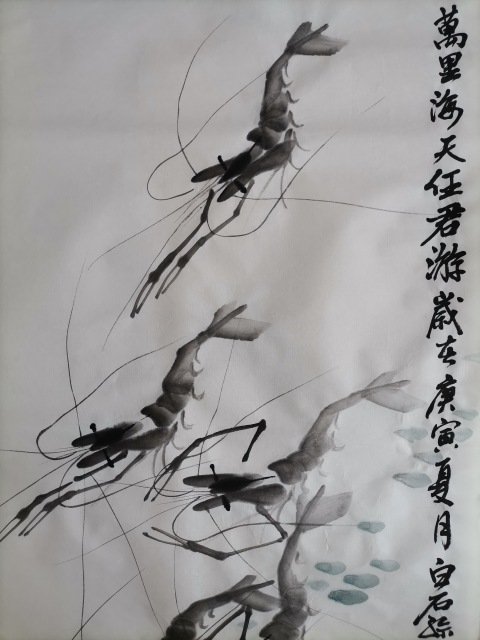 萬里海天任君游歲在庚寅夏月白石孫